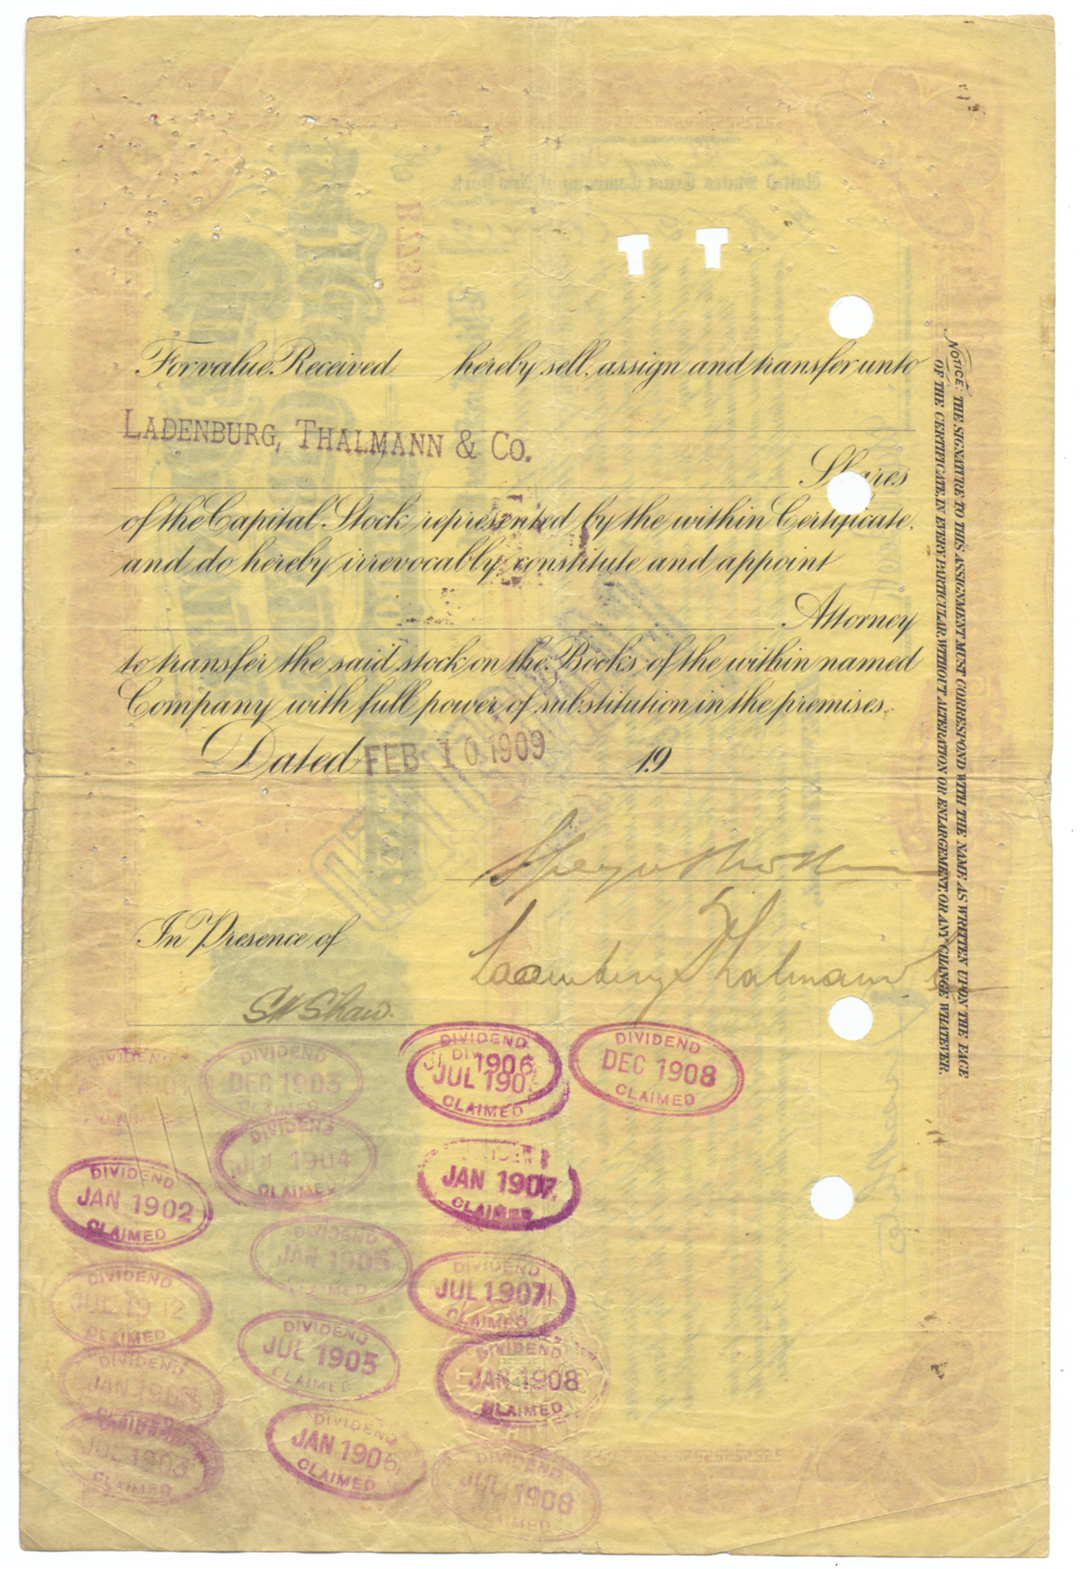 For value Received hereby sell, assign and transfer unto
LADENBURG, THALMANN & CO.
Shares
of the Capital Stock represented by the within Certificate,
and do hereby irrevocably constitute and appoint
Attorney
to transfer the said stock on the Books of the within named
Company with full power of substitution in the premises.
Dated FEB 10 1909 19
In Presence of
Thalmann
SW Shaw.
NOTICE: THE SIGNATURE TO THIS ASSIGNMENT MUST CORRESPOND WITH THE NAME AS WRITTEN UPON THE FACE
OF THE CERTIFICATE, IN EVERY PARTICULAR, WITHOUT ALTERATION OR ENLARGEMENT, OR ANY CHANGE WHATEVER.
DIVIDEND
DIVIDEND
DEC 1903
DIVIDEND
JUL 1906
CLAIMED
DIVIDEND
DEC 1908
CLAIMED
DIVIDEND
JAN 1902
CLAIMED
DIVIDEND
JUL 1904
CLAIMED
JAN 1907
CLAIMED
DIVIDEND
JUL 1902
CLAIMED
DIVIDEND
JAN 1905
CLAIMED
DIVIDEND
JUL 1907
CLAIMED
DIVIDEND
JAN 1903
CLAIMED
DIVIDEND
JUL 1905
CLAIMED
DIVIDEND
JAN 1908
CLAIMED
DIVIDEND
JUL 1903
CLAIMED
DIVIDEND
JAN 1906
CLAIMED
DIVIDEND
JUL 1908
CLAIMED